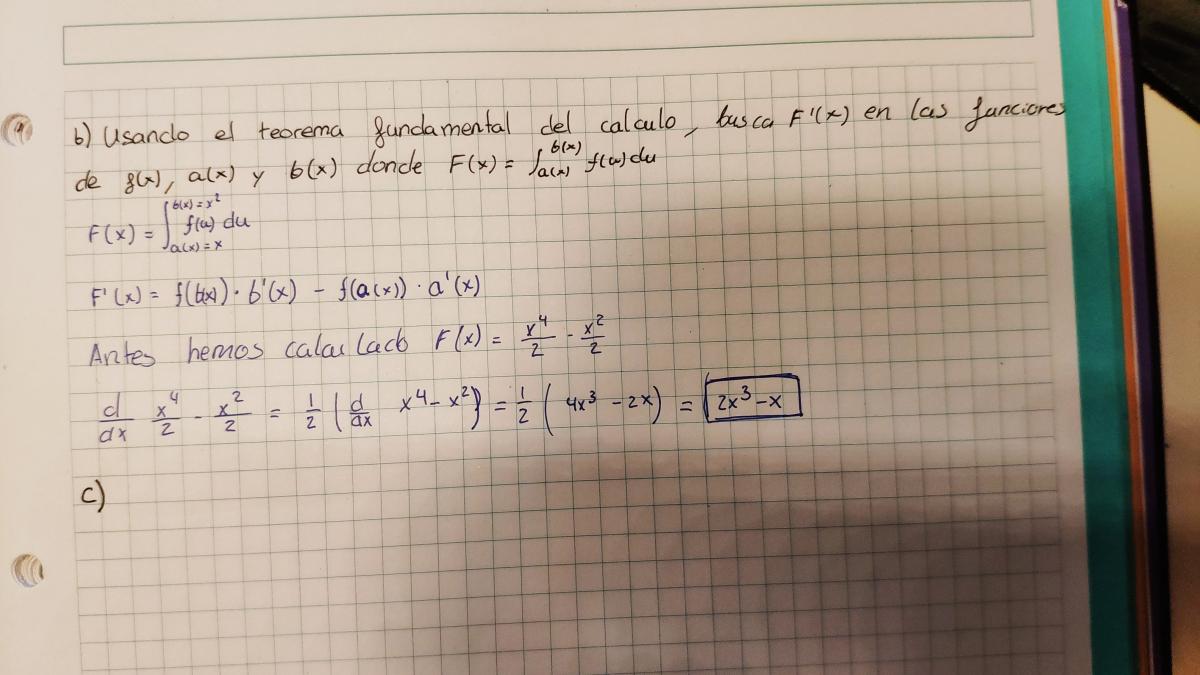 b) Usando el teorema fundamental del calculo, busca F'(x) en las funciones
de f(x), a(x) y b(x) donde F(x) = ∫_{a(x)}^{b(x)} f(u) du
F(x) = ∫_{a(x)=x}^{b(x)=x²} f(u) du
F'(x) = f(b(x)) · b'(x) - f(a(x)) · a'(x)
Antes hemos calculado F(x) = x⁴/2 - x²/2
d/dx x⁴/2 - x²/2 = 1/2 (d/dx x⁴ - x²) = 1/2 (4x³ - 2x) = 2x³ - x
c)